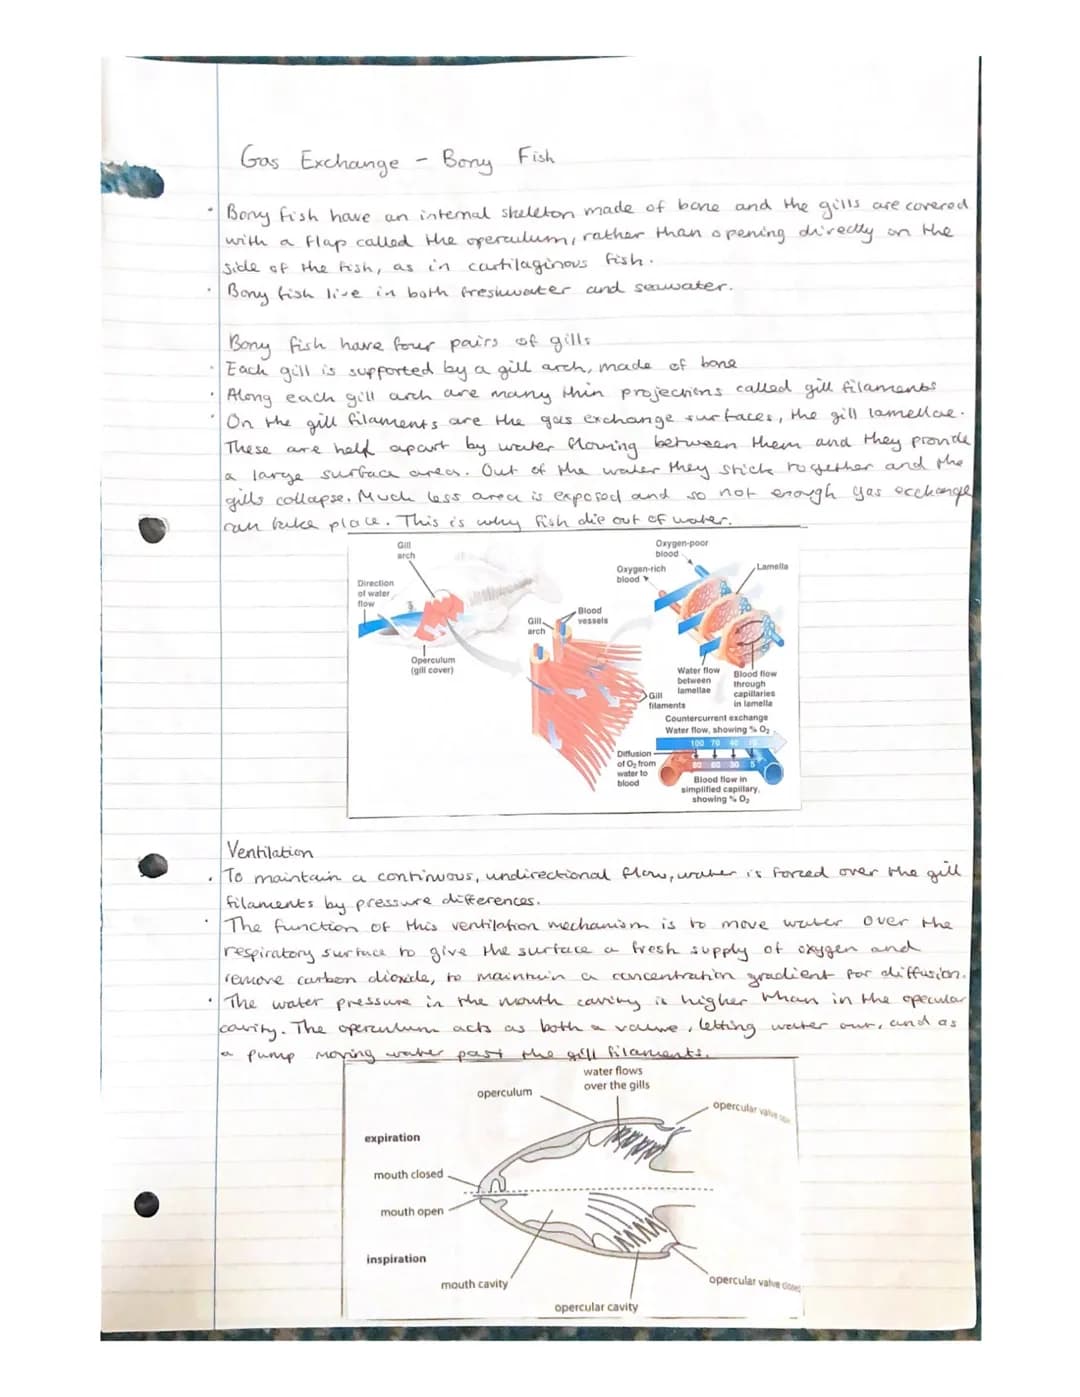 Gas Exchange - Bony Fish
· Bony fish have an internal skeleton made of bone and the gills are covered
with a flap called the operculum, rather than opening directly on the
side of the fish, as in cartilaginous fish.
· Bony fish live in both freshwater and seawater.
Bony fish have four pairs of gills
· Each gill is supported by a gill arch, made of bone
· Along each gill arch are many thin projections called gill filaments
· On the gill filaments are the gas exchange surfaces, the gill lamellae.
These are held apart by water flowing between them and they provide
a large surface area. Out of the water they stick together and the
gills collapse. Much less area is exposed and so not enough gas exchange
can take place. This is why fish die out of water.
Gill
arch
Direction
of water
flow
Operculum
(gill cover)
Gill
arch
Blood
vessels
Gill
filaments
Oxygen-poor
blood
Oxygen-rich
blood
Lamella
Water flow
between
lamellae
Blood flow
through
capillaries
in lamella
Countercurrent exchange
Water flow, showing % O₂
100 70 40
Diffusion
of O₂ from
water to
blood
60 30 5
Blood flow in
simplified capillary,
showing % O₂
Ventilation
· To maintain a continuous, undirectional flow, water is forced over the gill
filaments by pressure differences.
· The function of this ventilation mechanism is to move water over the
respiratory surface to give the surface a fresh supply of oxygen and
remove carbon dioxide, to maintain a concentration gradient for diffusion.
· The water pressure in the mouth cavity is higher than in the opecular
cavity. The operculum acts as both a valve, letting water out, and as
a pump moving water past the gill filaments.
water flows
over the gills
operculum
opercular valve
expiration
mouth closed
mouth open
inspiration
mouth cavity
opercular cavity
opercular valve closed